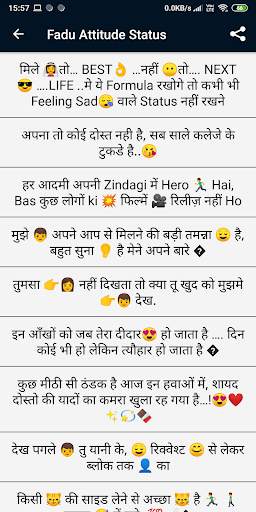 15:57
0.0KB/s
Fadu Attitude Status
मिले 👰तो... BEST👌 ...नहीं 😶तो.... NEXT
😎 ....LIFE ..मे ये Formula रखोगे तो कभी भी
Feeling Sad😪 वाले Status नहीं रखने
अपना तो कोई दोस्त नही है, सब साले कलेजे के
टुकडे है..😘
हर आदमी अपनी Zindagi में Hero 🏃‍♂️ Hai,
Bas कुछ लोगों ki 💥 फिल्में 🎥 रिलीज़ नहीं Ho
मुझे 👦 अपने आप से मिलने की बड़ी तमन्ना 😉 है,
बहुत सुना 👂 है मेने अपने बारे �
तुमसा 👉👩 नहीं दिखता तो क्या तू खुद को मुझमे
👉👦 देख.
इन आँखों को जब तेरा दीदार😍 हो जाता है .... दिन
कोई भी हो लेकिन त्यौहार हो जाता है �
कुछ मीठी सी ठंडक है आज इन हवाओं में, शायद
दोस्तो की यादों का कमरा खुला रह गया है...!😍❤️
✨💫🍫
देख पगले 👦 तु यानी के, 😉 रिक्वेश्ट 😊 से लेकर
ब्लोक तक 👤 का
किसी 😼 की साइड लेने से अच्छा 😼 है 🚶🚶